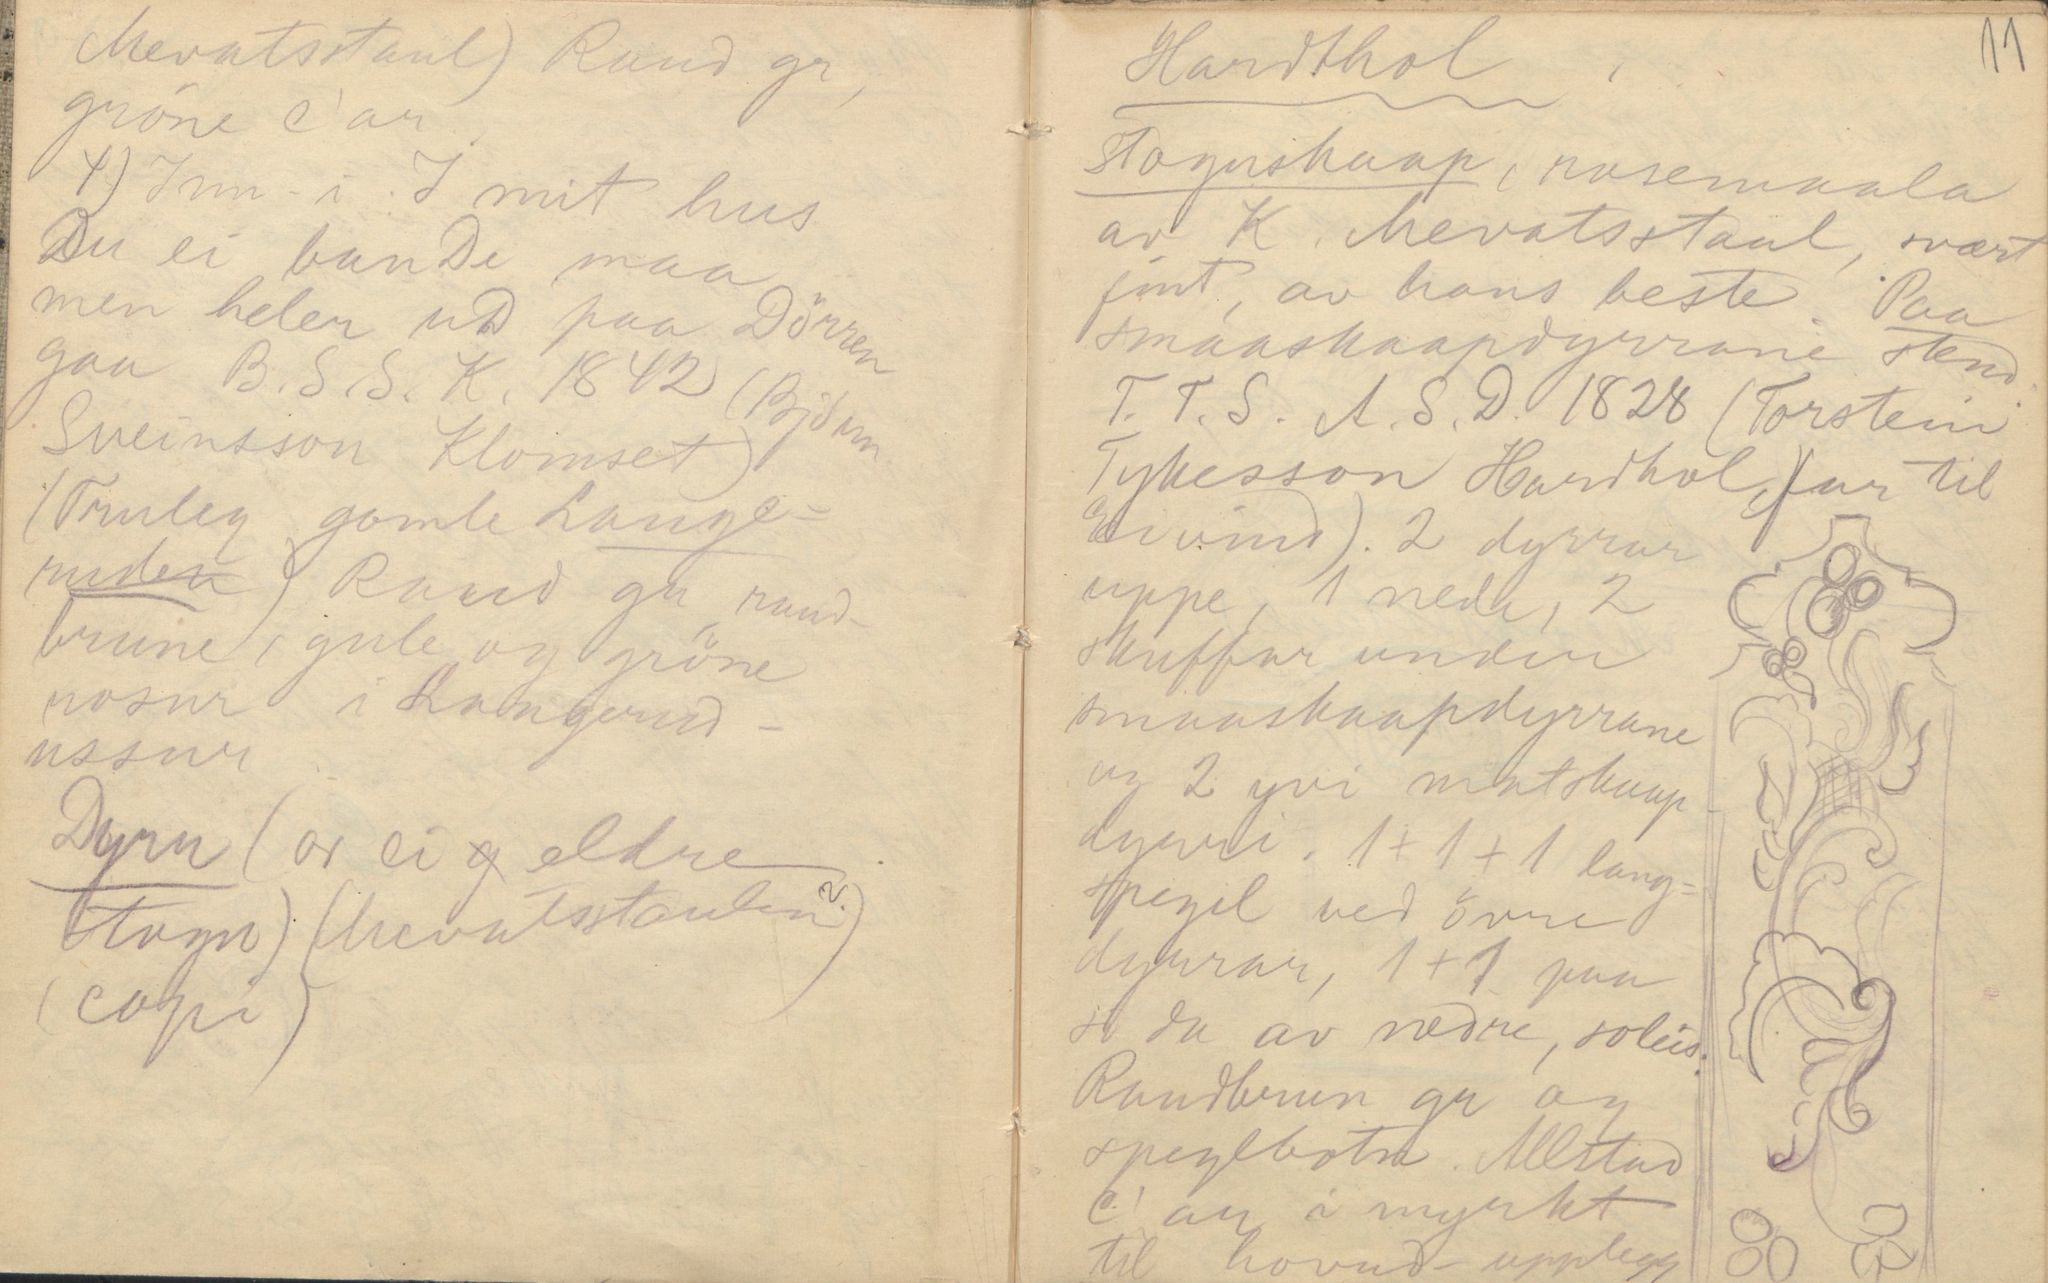 Mevatsstaul) Raud gr,
gröne c'ar.
4) Inn-i. I mit hus
Du ei banDe maa
men heler uD paa Dörren
gaa B.S.S.K. 1842 (Björn
Sveinsson Klomset)
(Truleg gamle Lange-
ruden) Raud gr, raud-
brune, gule og gröne
rosur i Langerud-
ussur
Dyru (or ei eldre
stogu) (Mevatsstaulen?)
(copi)
11
Hardthol
Stoguskaap, rosemaala
av K. Mevatsstaul, svært
fint, av hans beste. Paa
smaaskaapdyrrane stend
T. T. S. A. S. D. 1828 (Torstein
Tykesson Hardhol, far til
Eivind). 2 dyrrar
uppe, 1 nede, 2
skuffur under
smaaskaapdyrrane
og 2 yvi matskaap-
dyrri. 1+1+1 lang-
spegil ved övre
dyrrar, 1+1 paa
sida av nedre, soleis.
Raudbrun gr og
speglbotn. Allstad
c'ar i myrkt
til hovud-upplegg